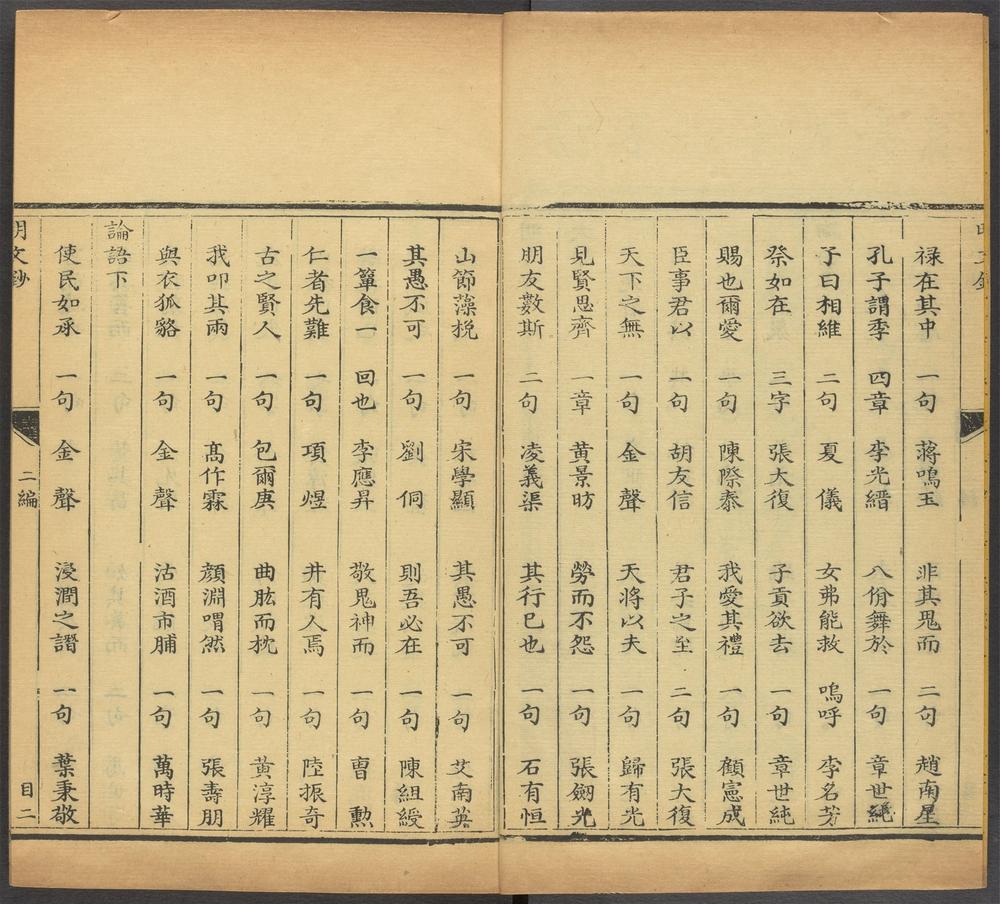 祿在其中 一句 蔣鳴玉 非其鬼而 二句 趙南星
孔子謂季 四章 李光縉 八佾舞於 一句 章世純
子曰相維 二句 夏儀 女弗能救 嗚呼 李名芳
祭如在 三字 張大復 子貢欲去 一句 章世純
賜也爾愛 一句 陳際泰 我愛其禮 一句 顧憲成
臣事君以 一句 胡友信 君子之至 二句 張大復
天下之無 一句 金聲 天將以夫 一句 歸有光
見賢思齊 一章 黃景昉 勞而不怨 一句 張劒光
朋友數斯 二句 凌義渠 其行己也 一句 石有恒
山節藻梲 一句 宋學顯 其愚不可 一句 艾南英
其愚不可 一句 劉侗 則吾必在 一句 陳組綬
一簞食一 回也 李應昇 敬鬼神而 一句 曹勲
仁者先難 一句 項煜 井有人焉 一句 陸振奇
古之賢人 一句 包爾庚 曲肱而枕 一句 黃淳耀
我叩其兩 一句 髙作霖 顏淵喟然 一句 張壽朋
與衣狐貉 一句 金聲 沽酒市脯 一句 萬時華
論語下
使民如承 一句 金聲 浸潤之譖 一句 葉秉敬
明文鈔 二編 目二